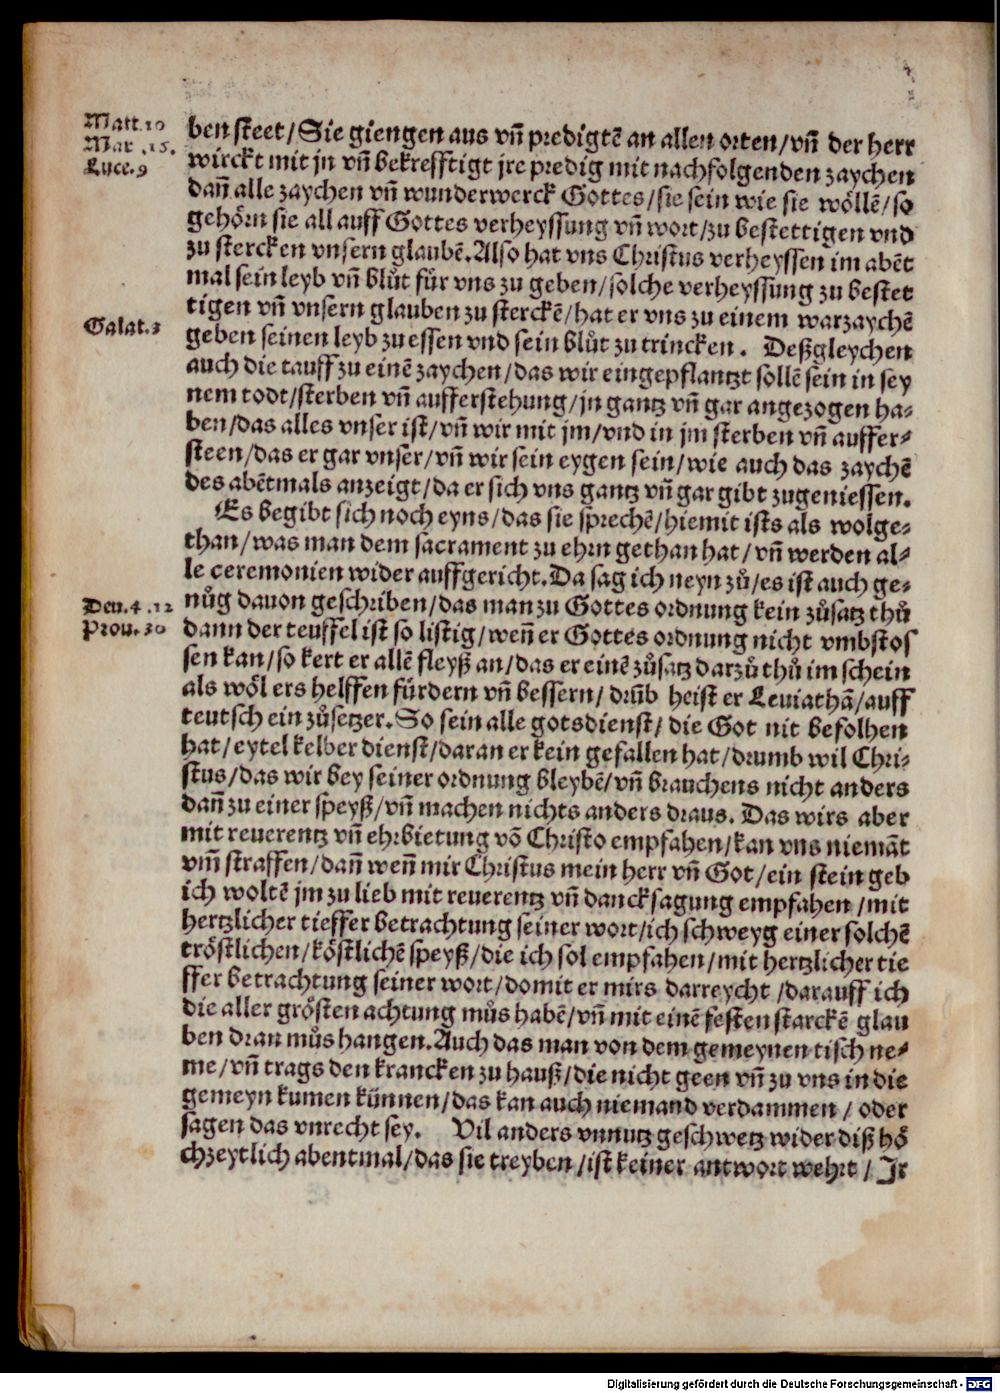 Matt.10
Mar .15.
Luce.9
ben steet/Sie giengen aus vñ predigtē an allen orten/vñ der herr
wirckt mit jn vñ bekrefftigt jre predig mit nachfolgenden zaychen
dañ alle zaychen vñ wunderwerck Gottes/sie sein wie sie wöllē/so
gehörn sie all auff Gottes verheyssung vñ wort/zu bestettigen vnd
zu stercken vnsern glaubē.Also hat vns Christus verheyssen im abēt
mal sein leyb vñ blůt für vns zu geben/solche verheyssung zu bestet
tigen vñ vnsern glauben zu sterckē/hat er vns zu einem warzaychē
Galat.3
geben seinen leyb zu essen vnd sein blůt zu trincken . Deßgleychen
auch die tauff zu einē zaychen/das wir eingepflantzt sollē sein in sey
nem todt/sterben vñ aufferstehung/jn gantz vñ gar angezogen ha⸗
ben/das alles vnser ist/vñ wir mit jm/vnd in jm sterben vñ auffer⸗
steen/das er gar vnser/vñ wir sein eygen sein/wie auch das zaychē
des abētmals anzeigt/da er sich vns gantz vñ gar gibt zugeniessen.
Es begibt sich noch eyns/das sie sprechē/hiemit ists als wolge⸗
than/was man dem sacrament zu ehrn gethan hat/vñ werden al⸗
le ceremonien wider auffgericht.Da sag ich neyn zů/es ist auch ge⸗
Deu.4 .12
nůg dauon geschriben/das man zu Gottes ordnung kein zůsatz thů
Prou.30
dann der teuffel ist so listig/weñ er Gottes ordnung nicht vmbstos
sen kan/so kert er allē fleyß an/das er einē zůsatz darzů thů im schein
als wöl ers helffen fürdern vñ bessern/drūb heist er Leuiathā/auff
teutsch ein zůsetzer.So sein alle gotsdienst/die Got nit befolhen
hat/eytel kelber dienst/daran er kein gefallen hat/drumb wil Chri⸗
stus/das wir bey seiner ordnung bleybē/vñ brauchens nicht anders
dañ zu einer speyß/vñ machen nichts anders draus. Das wirs aber
mit reuerentz vñ ehrbietung vō Christo empfahen/kan vns niemāt
vm̄ straffen/dañ weñ mir Christus mein herr vñ Got/ein stein geb
ich woltē jm zu lieb mit reuerentz vñ dancksagung empfahen/mit
hertzlicher tieffer betrachtung seiner wort/ich schweyg einer solchē
tröstlichen/köstlichē speyß/die ich sol empfahen/mit hertzlicher tie
ffer betrachtung seiner wort/domit er mirs darreycht/darauff ich
die aller grösten achtung můs habē/vñ mit einē festen starckē glau
ben dran můs hangen.Auch das man von dem gemeynen tisch ne⸗
me/vñ trags den krancken zu hauß/die nicht geen vñ zu vns in die
gemeyn kumen künnen/das kan auch niemand verdammen/oder
sagen das vnrecht sey. Vil anders vnnutz geschwetz wider diß hö
chzeytlich abentmal/das sie treyben/ist keiner antwort wehrt/Jr
Digitalisierung gefördert durch die Deutsche Forschungsgemeinschaft - DFG